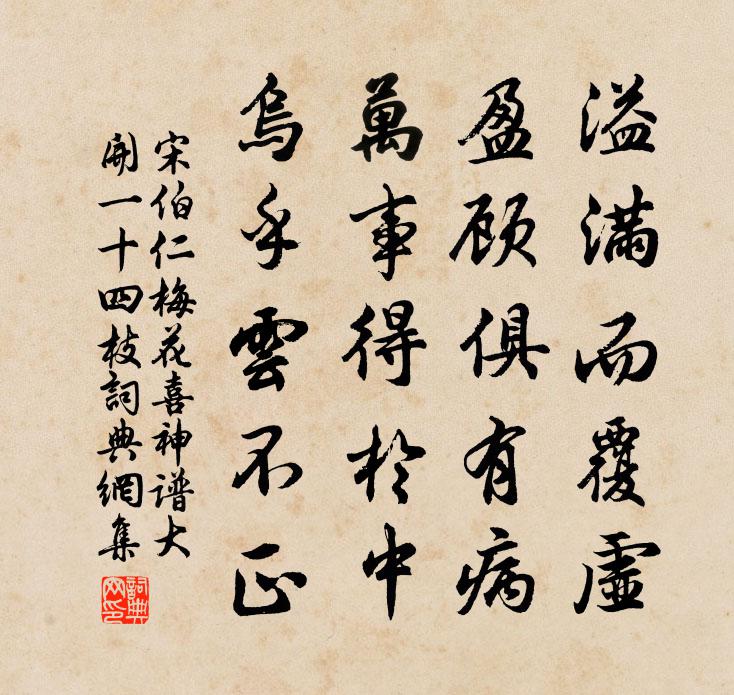 溢滿而覆虛
盈顧俱有病
萬事得於中
烏乎雲不正
宋伯仁梅花喜神譜大
開一十四枝詞典網集
詞典网印